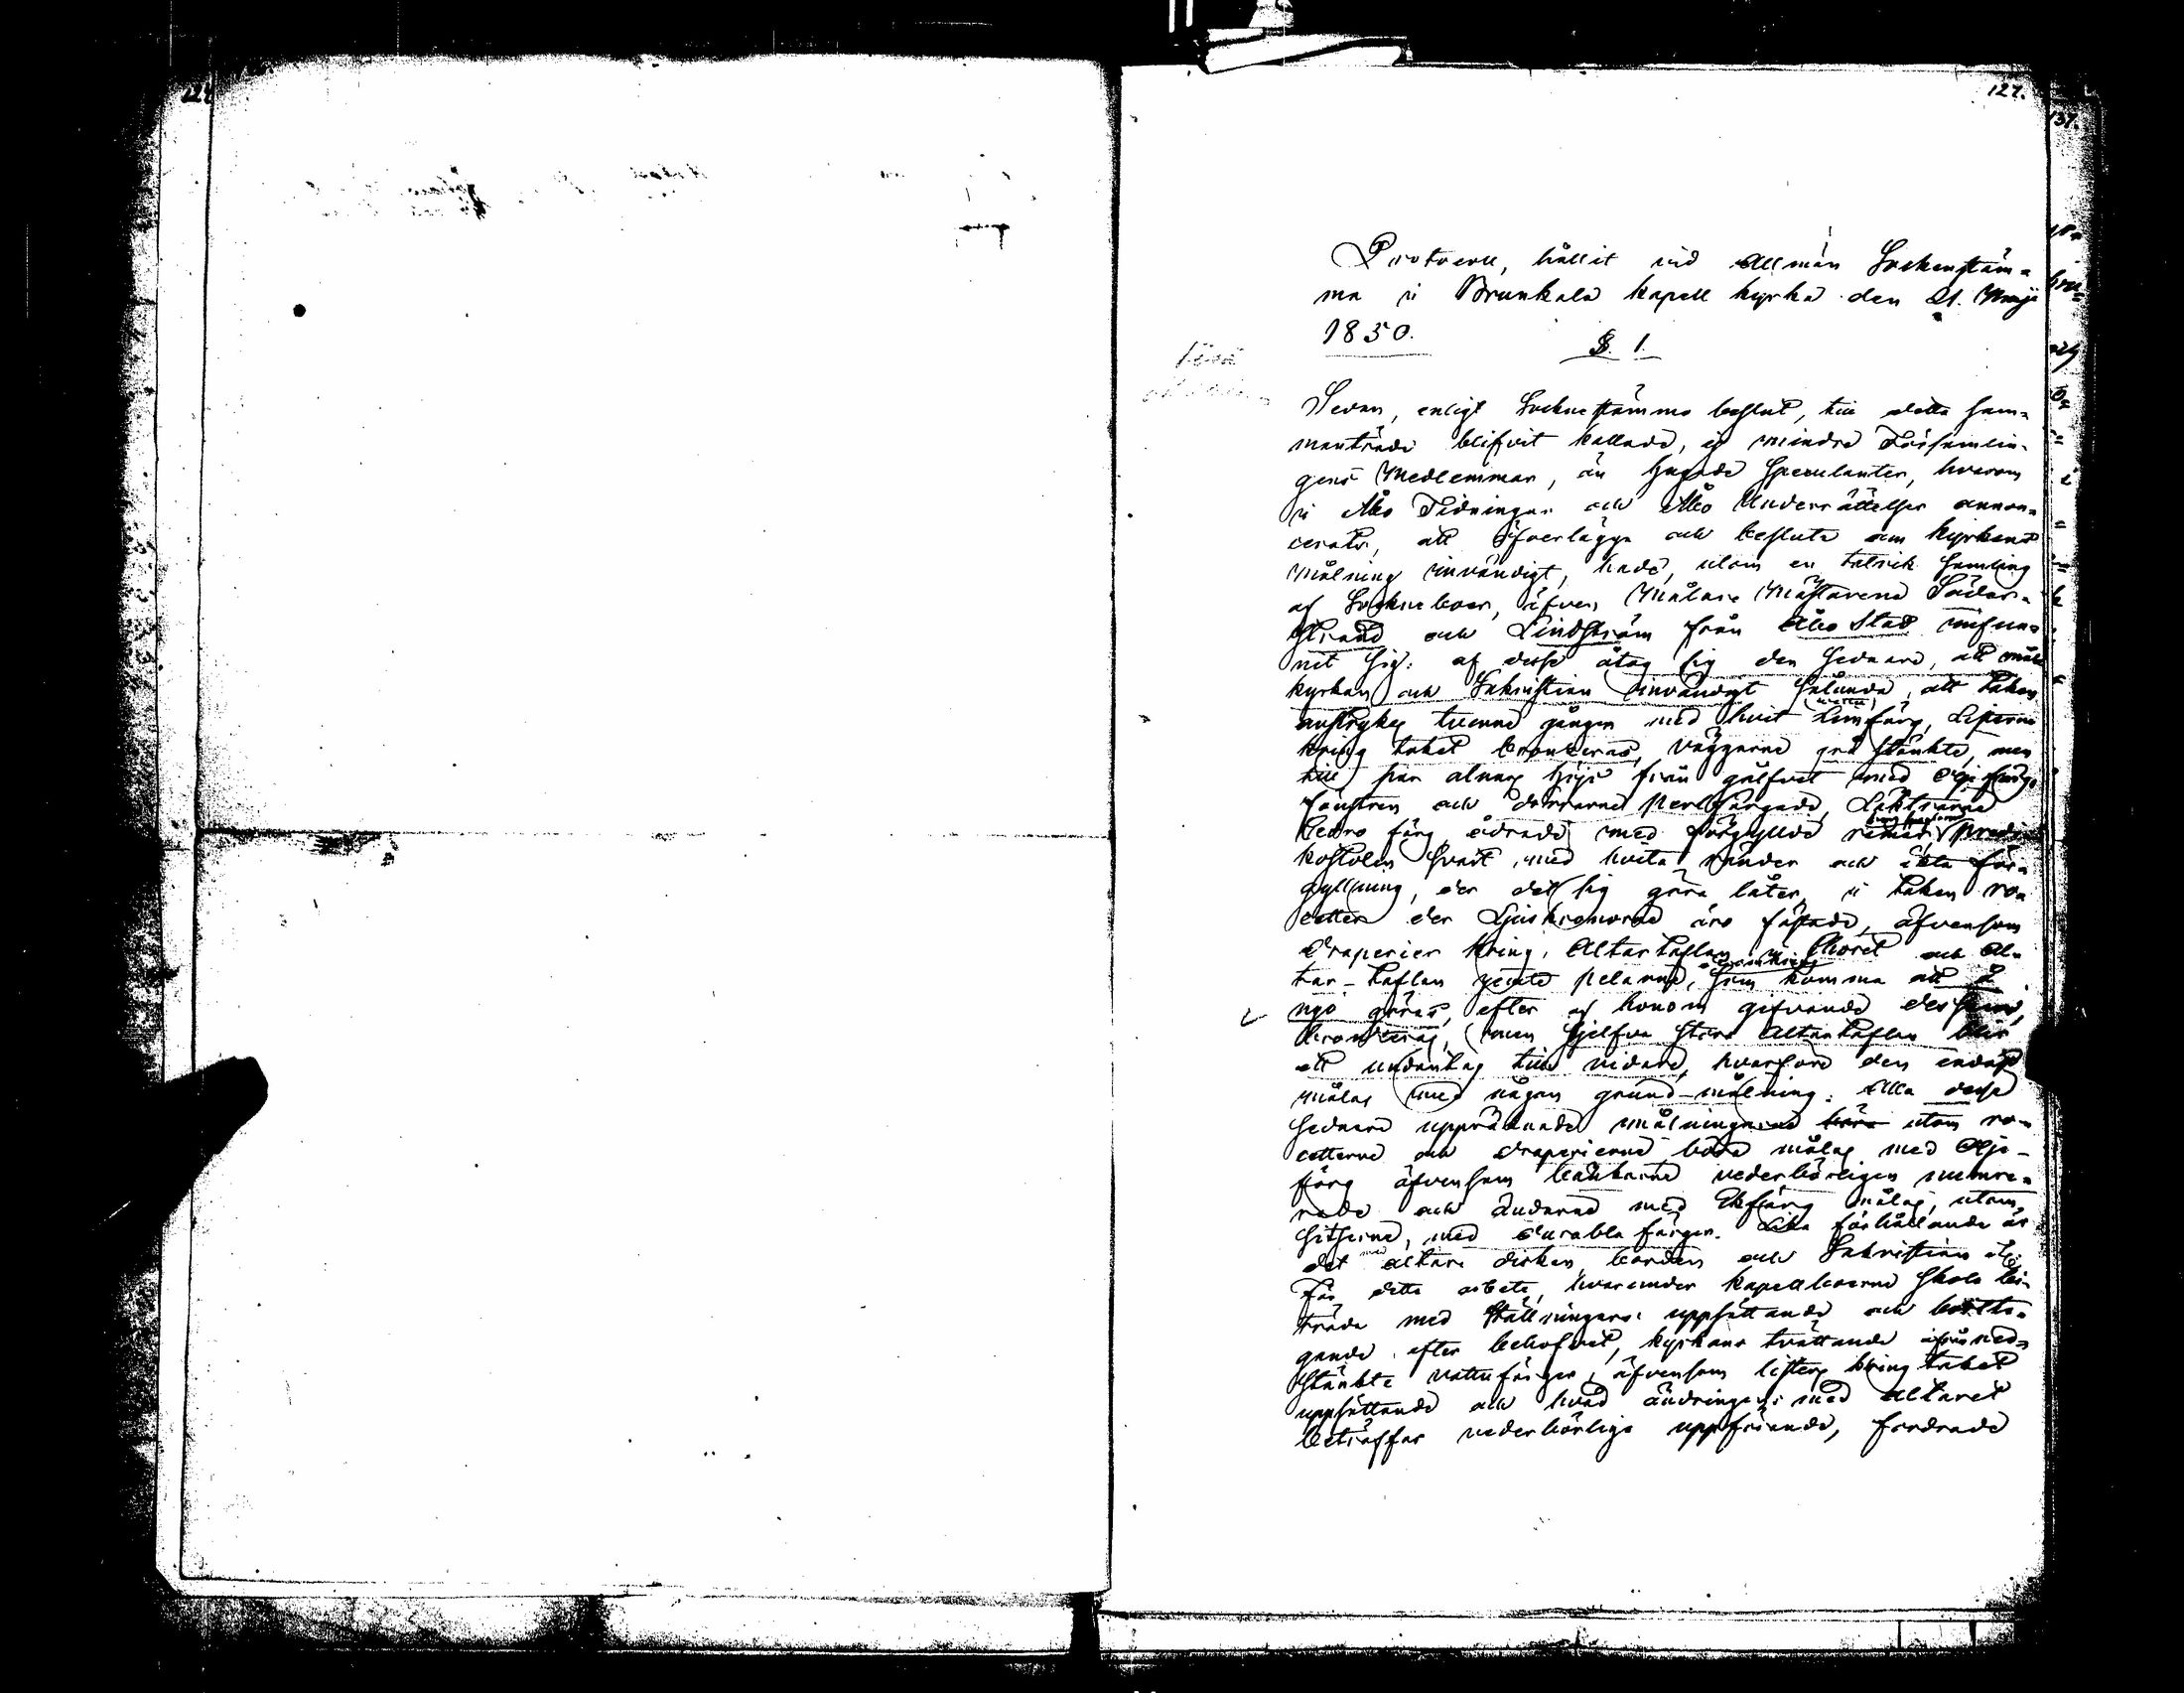 127.
Protocoll, hållit vid Allmän Sockenstäm=
ma i Brunkala kapell kyrka den 21. Maji
1850.
§. 1.
Sedan, enligt Sockenstämmo beslut, till detta sam=
manträde blifvit kallade, ej mindre Församlin=
gens Medlemmar, än hugade Speculanter, hvarom
i Åbo Tidningar och Åbo Underrättelser annon=
cerats, att öfverlägga och besluta om kyrkans
målning invändigt, hade, utom en talrik samling
af Sockneboer, äfven Målare Mästarene Söder=
strand och Lindström från Åbo Stad infun=
nit sig: af desse åtog sig den sednare, att måla
kyrkan och Sakristian invändigt sålunda, att taken
anstrykes tvenne gånger med hvit Limfärg, Listerna
kring taket bronzeras, väggarne grå stänkte, men
till par alnars höjd från gålfvet med oljefärg,
fönstren och dörrarne perlfärgade, Läktrarne
Cedro färg ådrade med förgyllde ramar, predi
kostolen hvit med hvita ränder och äkta för=
gyllning, der det sig göra låter, i taken ro=
cetter der Ljuskronorne äro fästade, äfvensom
draperier kring Altartaflan i Choret och Al=
tar-taflan jemte pelarne, som komma att å
nyo göras, efter af honom gifvande dessein,
bronzeras, men sjelfva stora Altartaflan blir
ett undantag till vidare, hvarföre den endast
målas med någon grund-målning. Alla desse
sednare uppräknade målningarne utom ro=
cetterne och draperierne böra målas med Olje-
färg äfvensom bänkarne vederbörligen numre=
rade och ändarne med Ekfärg målas, utom
sitsarne, med durabla färger. Lika förhållande är
det med altare disken, borden och Sakristian
För detta arbete, hvarunder kapellboerne skola bi=
träda med ställningars uppsättande och bortta=
gande efter behofvet, kyrkans tvättande ifrån ned=
stänkte vattufärger, äfvensom listers kring taket
uppsättande och hvad ändringen med altaret
beträffar vederbörliga uppförande, fordrade